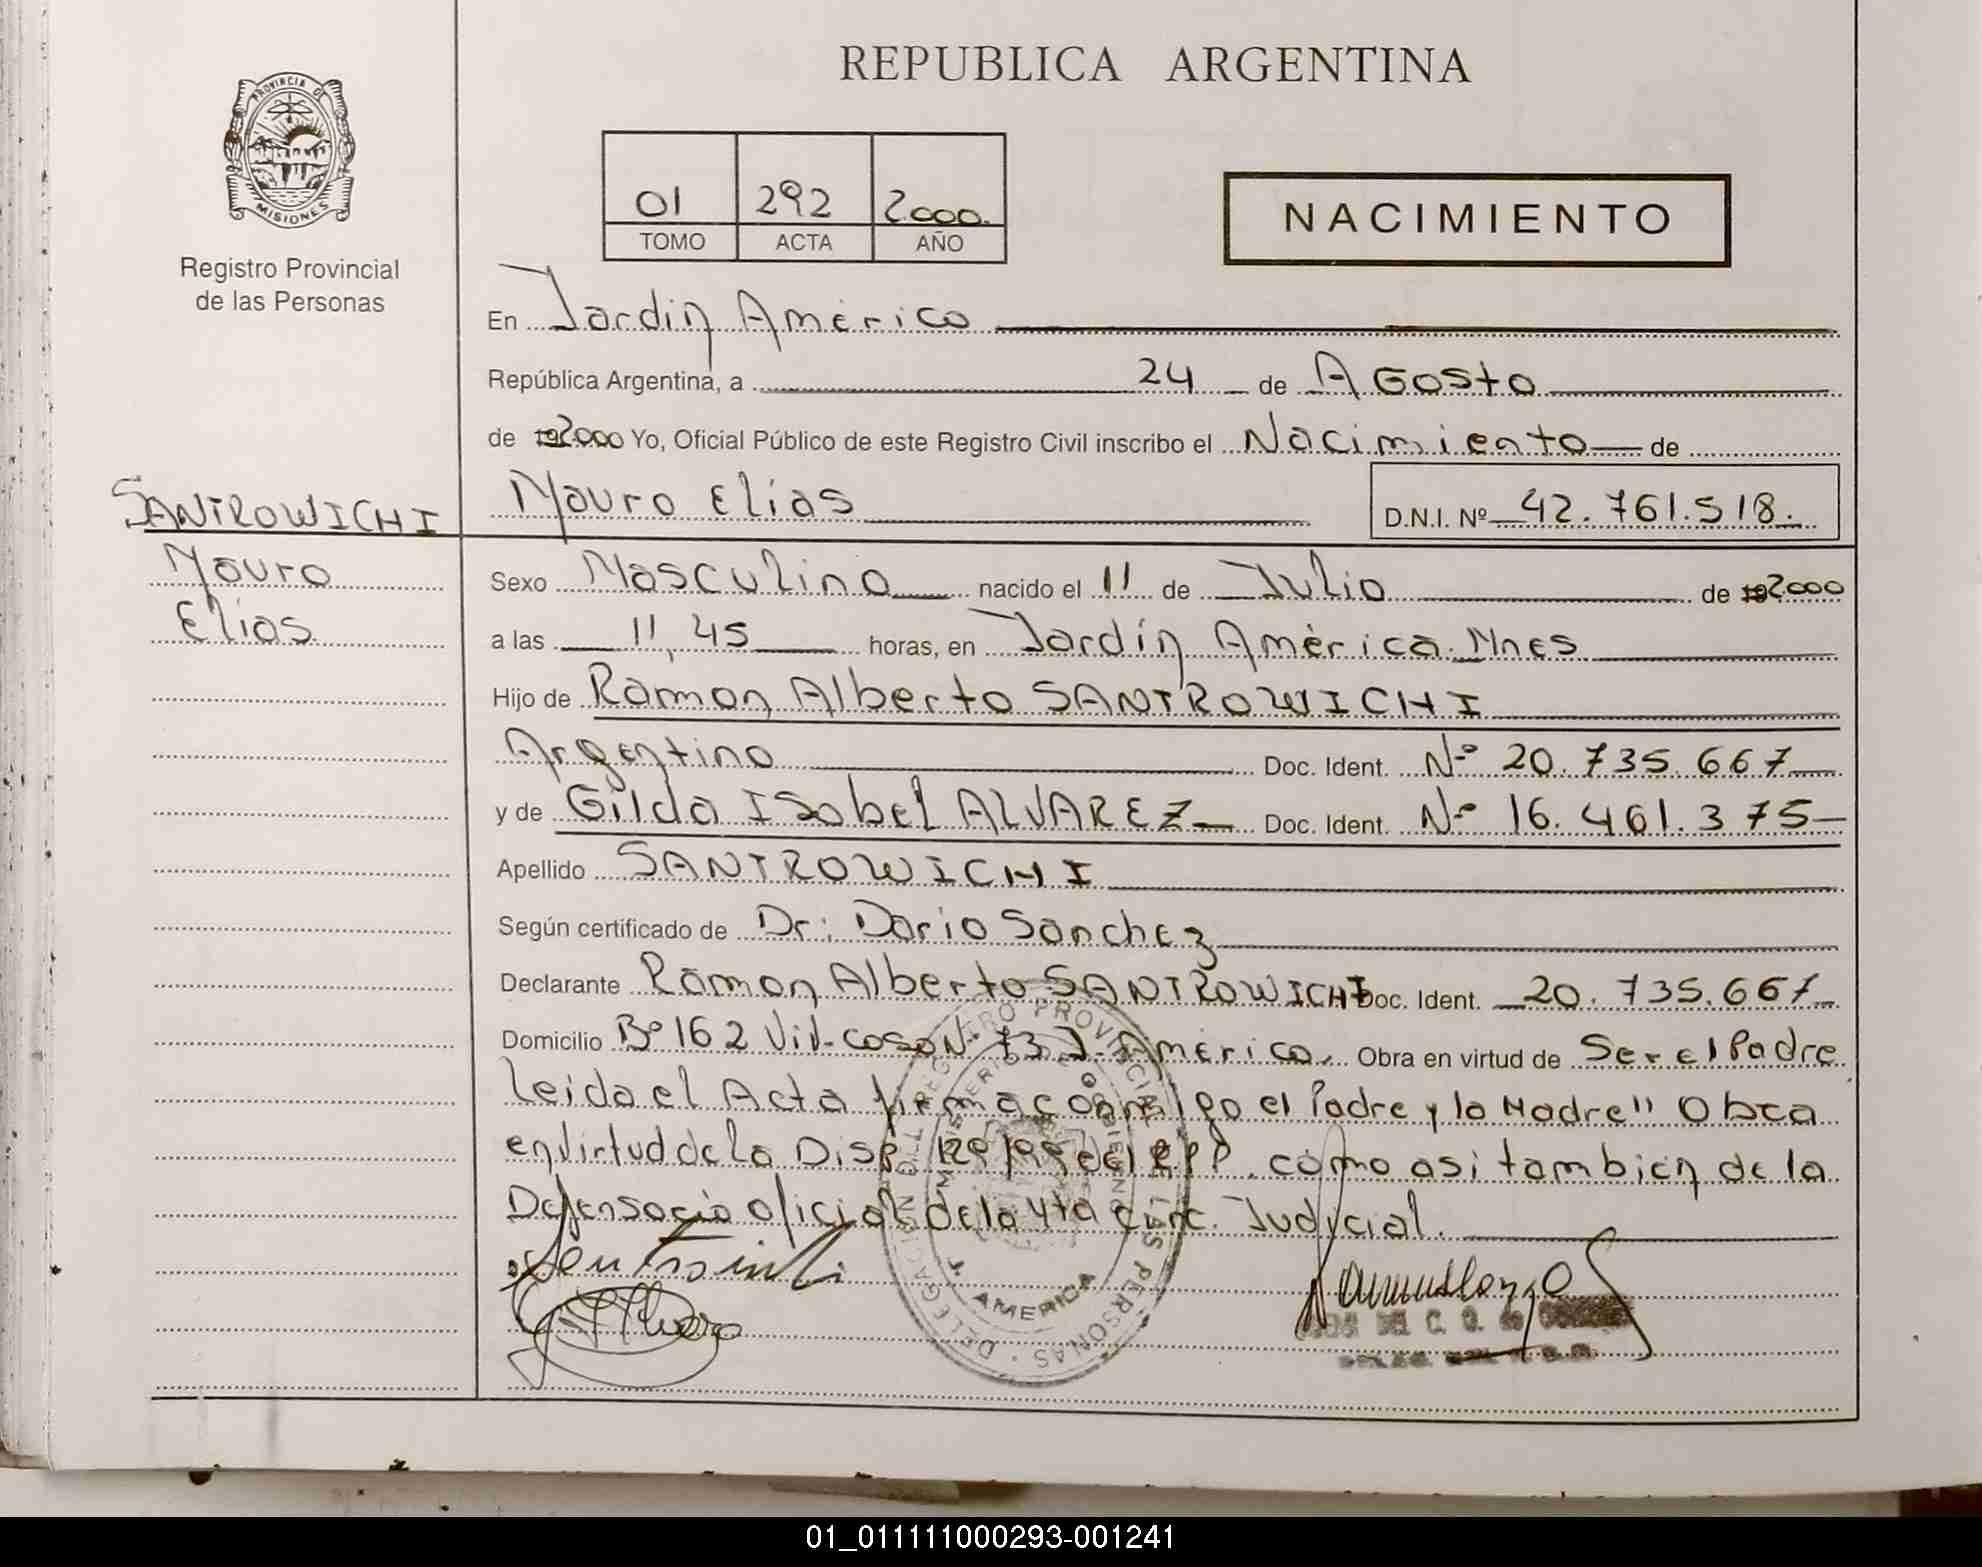 REPUBLICA ARGENTINA
PROVINCIA DE
MISIONES
Registro Provincial
de las Personas
01 292 2000.
TOMO ACTA AÑO
NACIMIENTO
En Jardin América
República Argentina, a 24 de Agosto
de 192000 Yo, Oficial Público de este Registro Civil inscribo el Nacimiento de
SANTROWICHI
Mauro
Elias
Mauro Elias D.N.I. Nº 42.761.518.
Sexo Masculino nacido el 11 de Julio de 192000
a las 11,45 horas, en Jardín América. Mnes
Hijo de Ramon Alberto SANTROWICHI
Argentino Doc. Ident. Nº 20.735.667
y de Gilda Isabel ALVAREZ Doc. Ident. Nº 16.461.375
Apellido SANTROWICHI
Según certificado de Dr: Dario Sanchez
Declarante Ramon Alberto SANTROWICHI Doc. Ident. 20.735.667
Domicilio Bº 162 Viv. casa Nº 73 J. América. Obra en virtud de Ser el Padre
leida el Acta firma conmigo el Padre y la Madre" Obra
en virtud de la Disp. del RPP. como asi tambien de la
Defensoria oficial de la 4ta Circ. Judicial.
DELEGACION DEL REGISTRO PROVINCIAL DE LAS PERSONAS
MINISTERIO DE GOBIERNO
J. AMERICA
01_011111000293-001241